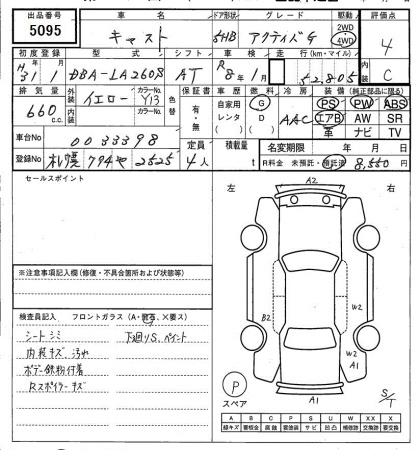 出品番号 車名 ドア形状 グレード 駆動 評価点
5095 キャスト 5HB アクティバG 2WD 4WD 4
初度登録 型式 シフト 車検 走行(km・マイル) 内装
H31/1 DBA-LA260S AT R8年1月 52,805 C
排気量 外装 カラーNo. 色替 保証書 車歴 燃料 冷房 装備(純正部品に限る)
660 c.c. イエロー Y13 有・無 自家用 レンタ G D AAC PS PW ABS
内装 カラーNo. エアB AW SR
車台No 0033398 革 ナビ TV
登録No 札幌 794や2525 定員 4人 積載量 t 名変期限 年 月 日
R料金 未預託・預託済 8,550円
セールスポイント
左 右
A2
※注意事項記入欄(修復・不具合箇所および状態等)
B2 W2
W2
A1
検査員記入 フロントガラス(A・飛石、×要ス)
シートシミ 下廻りS、ペイント
内装キズ、汚れ
ボデー鉄粉付着
Rスポイラーキズ
P
スペア
A1
S/T
A B C P S U W X XX
線キズ 要板金 腐食 要塗装 サビ 凹凸 補修跡 交換跡 要交換